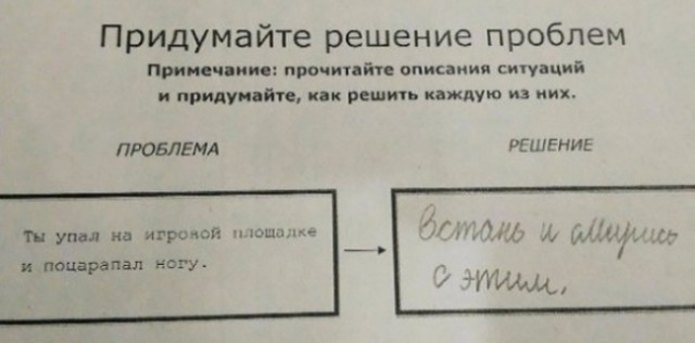 Придумайте решение проблем
Примечание: прочитайте описания ситуаций
и придумайте, как решить каждую из них.
ПРОБЛЕМА
РЕШЕНИЕ
Ты упал на игровой площадке
и поцарапал ногу.
Встань и смирись
с этим.